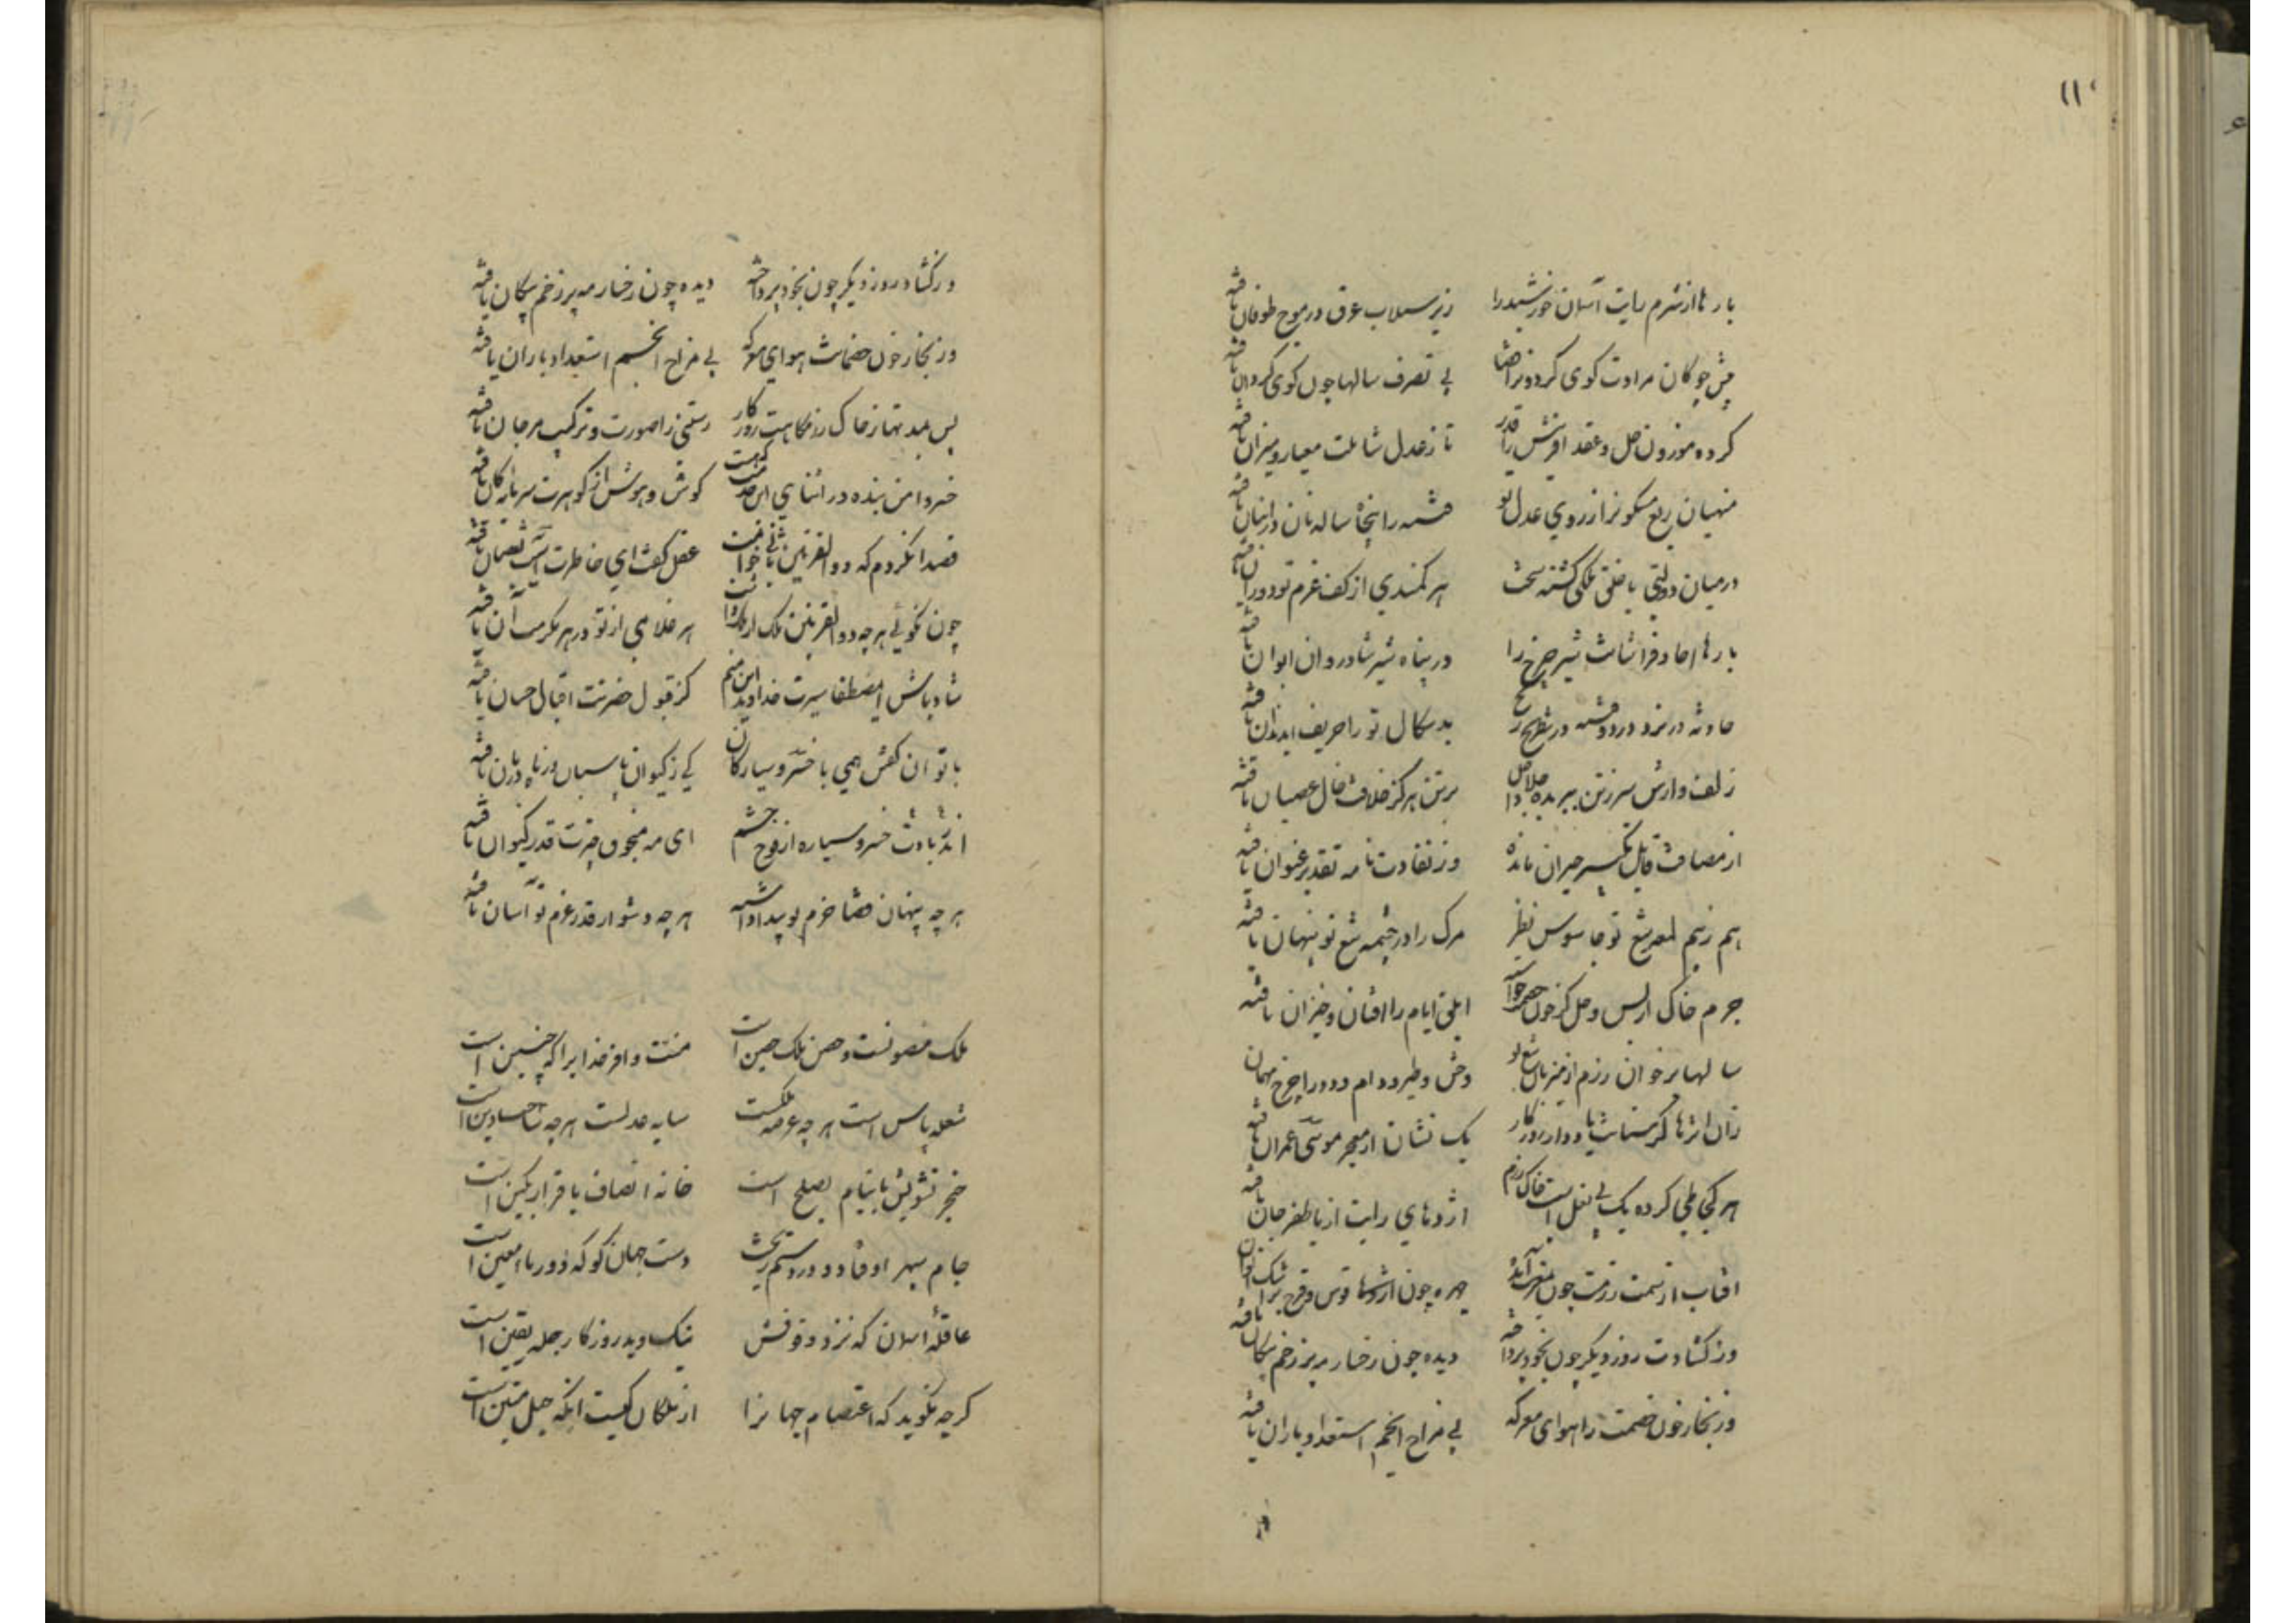 ۱۱
بارها از شرم رایت آسمان خورشید را زیر سیلاب عرق در موج طوفان یافته
پیش چوکان مرادت کوی کردونرا قضا بی تصرف سالها چون کوی کردان یافته
کرده موزون حل و عقد آفرینش را قدر تا ز عدل شاملت معیار و میزان یافته
منهیان ربع مسکونرا ز روی عدل تو فتنه را پنجاه ساله نان در انبان یافته
در میان دولتی با خلق ملکی کشته سخت هر کمندی از کف عزم تو دوران یافته
بارها احاد فراشانت شیر چرخ را در پناه شیر شادروان ایوان یافته
حادثه در نرد درد و فتنه در شطرنج رنج بدسکال تو را حریف آب دندان یافته
زلف وارش سر ز تن ببریده جلاد اجل بر تن هر کز خلافت خال عصیان یافته
از مصافت قابل تکسیر حیران مانده وز نفاذت نامه تقدیر عنوان یافته
هم ز بیم لمعه تیغ تو جاسوس نظر مرک را در چشمه تیغ تو پنهان یافته
جرم خاک از بس وحل کز خون خصمت خواسته ابلق ایام را افتان و خیزان یافته
سالها بر خوان رزم از میزبان تیغ تو وحش و طیر و دام و دد را چرخ مهمان یافته
زان اثرها کز سنانت یاد دارد روزکار یک نشان از معجز موسی عمران یافته
هر کجا طی کرده یک پی نعل اسبت خاک رزم اژدهای رایت از باد ظفر جان یافته
آفتاب از سمت رزمت چون بمغرب آمده چهره چون از اشکها قوس قزح الوان یافته
وز کشادت روز دیکر چون بخود پرداخته دیده چون رخسار مه پر زخم پیکان یافته
وز بخار خون خصمت را هوای معرکه بی مزاج انجم استعداد باران یافته
در کشاد روز دیکر چون بخود پرداخته دیده چون رخسار مه پر زخم پیکان یافته
وز بخار خون خصمانت هوای معرکه بی مزاج انجم استعداد باران یافته
پس بمدتها ز خاک رزمکاهت روزکار رستنی را صورت و ترکیب مرجان یافته
خسروا من بنده در اثنای این خدمت که هست کوش و هوش از کوهرت سرمایه کان یافته
قصد آن کردم که ذو القرنین ثانی خوانمت عقل کفت ای خاطرت آسیب نقصان یافته
چون نکوئی هر چه ذو القرنین ملک ارملک داشت هر غلامی از تو در هر مکرمت آن یافته
شاد باش ای مصطفا سیرت خداوند این منم کز قبول حضرتت اقبال حسان یافته
با تو آن کفتن همی با خسرو سیارکان کی ز کیوان پاسبان وز ماه دربان یافته
اندر بادت خسرو سیاره از فوج حشم ای مه منجوق چترت قدر کیوان یافته
هر چه پنهان قضا حزم تو پیدا داشته هر چه دشوار قدر عزم تو آسان یافته
ملک مصونست و حصن ملک حصین است منت وافر خدایرا که چنین است
شعله پاس است هر چه عرصه ملکست سایه عدلست هر چه ساحت دین است
خنجر تشویش با نیام بصلح است خانه انصاف با قرار مکین است
جام سپهر اوفتاد و درد ستم ریخت دست جهان کو که دور ماء معین است
عاقله آسمان که نزد وقوفش نیک و بد روزکار جمله یقین است
کرچه نکوید که اعتصام جهانرا از ملکان کیست آنکه حبل متین است